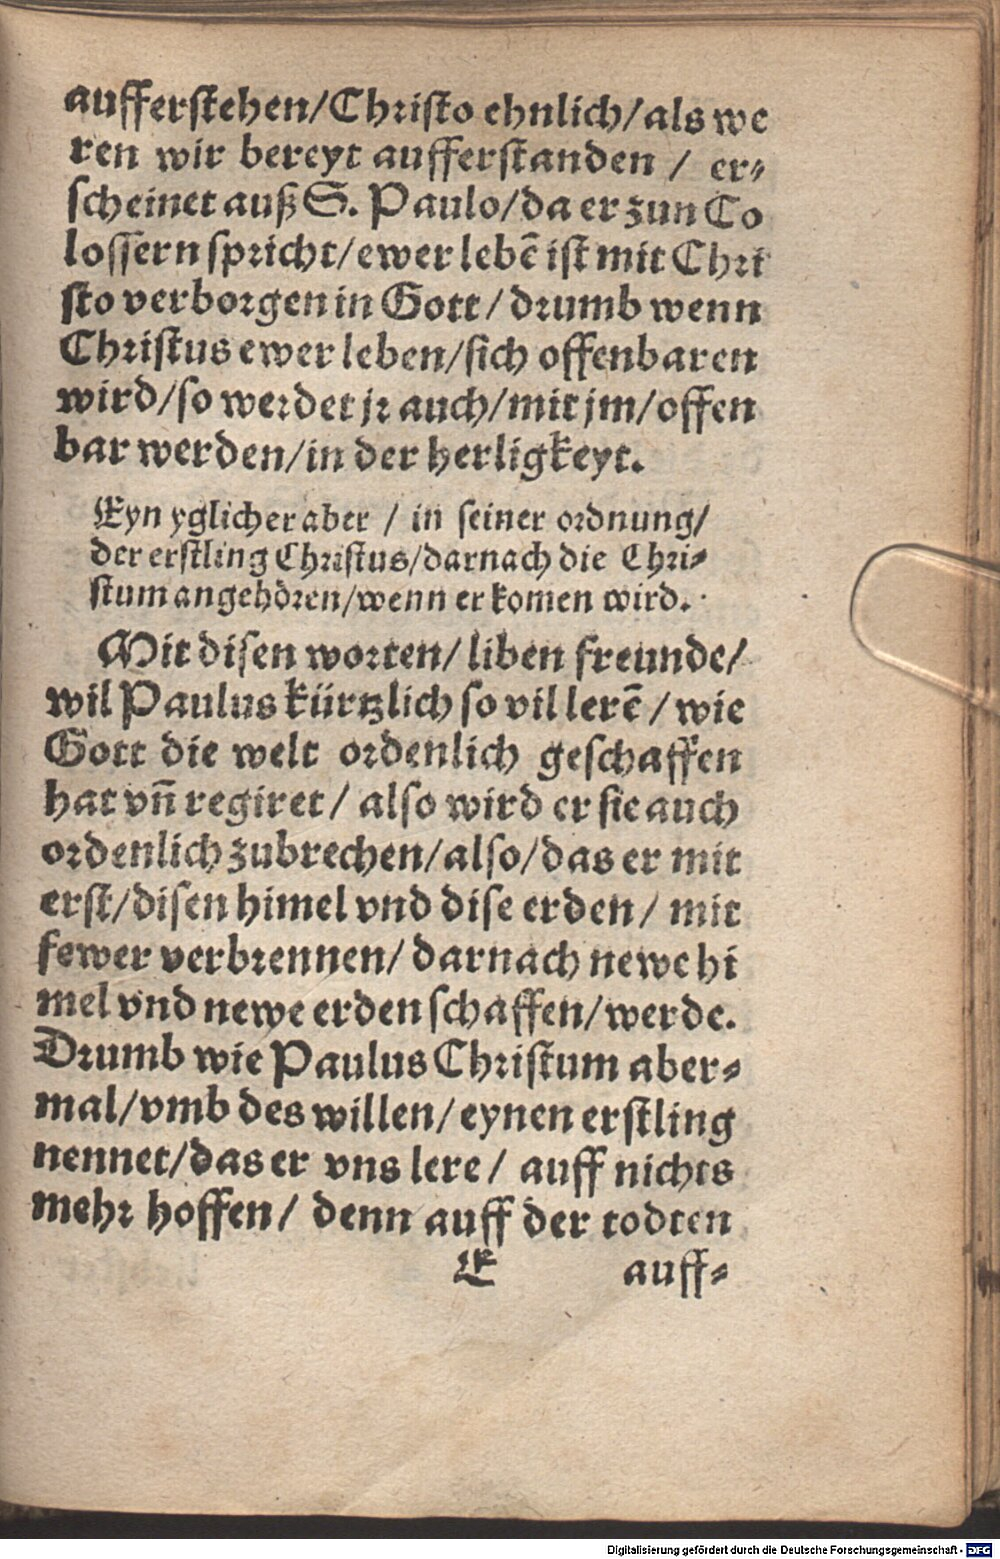 aufferſtehen/Chriſto ehnlich/als we
ren wir bereyt aufferſtanden / er⸗
ſcheinet auß S. Paulo/da er zun Co
loſſern ſpricht/ewer lebē iſt mit Chri
ſto verborgen in Gott/ drumb wenn
Chriſtus ewer leben/ſich offenbaren
wird/ſo werdet jr auch/mit jm/offen
bar werden/in der herligkeyt.
Eyn yglicher aber / in ſeiner ordnung/
der erſtling Chriſtus/darnach die Chri⸗
ſtum angehören/wenn er komen wird.
Mit diſen worten/ liben freunde/
wil Paulus kürtzlich ſo vil lerē / wie
Gott die welt ordenlich geſchaffen
hat vn̄ regiret/ alſo wird er ſie auch
ordenlich zubrechen/alſo/das er mit
erſt/diſen himel vnd diſe erden/ mit
fewer verbrennen/ darnach newe hi
mel vnd newe erden ſchaffen/werde.
Drumb wie Paulus Chriſtum aber⸗
mal/vmb des willen/ eynen erſtling
nennet/das er vns lere/ auff nichts
mehr hoffen/ denn auff der todten
E auff⸗
Digitalisierung gefördert durch die Deutsche Forschungsgemeinschaft - DFG